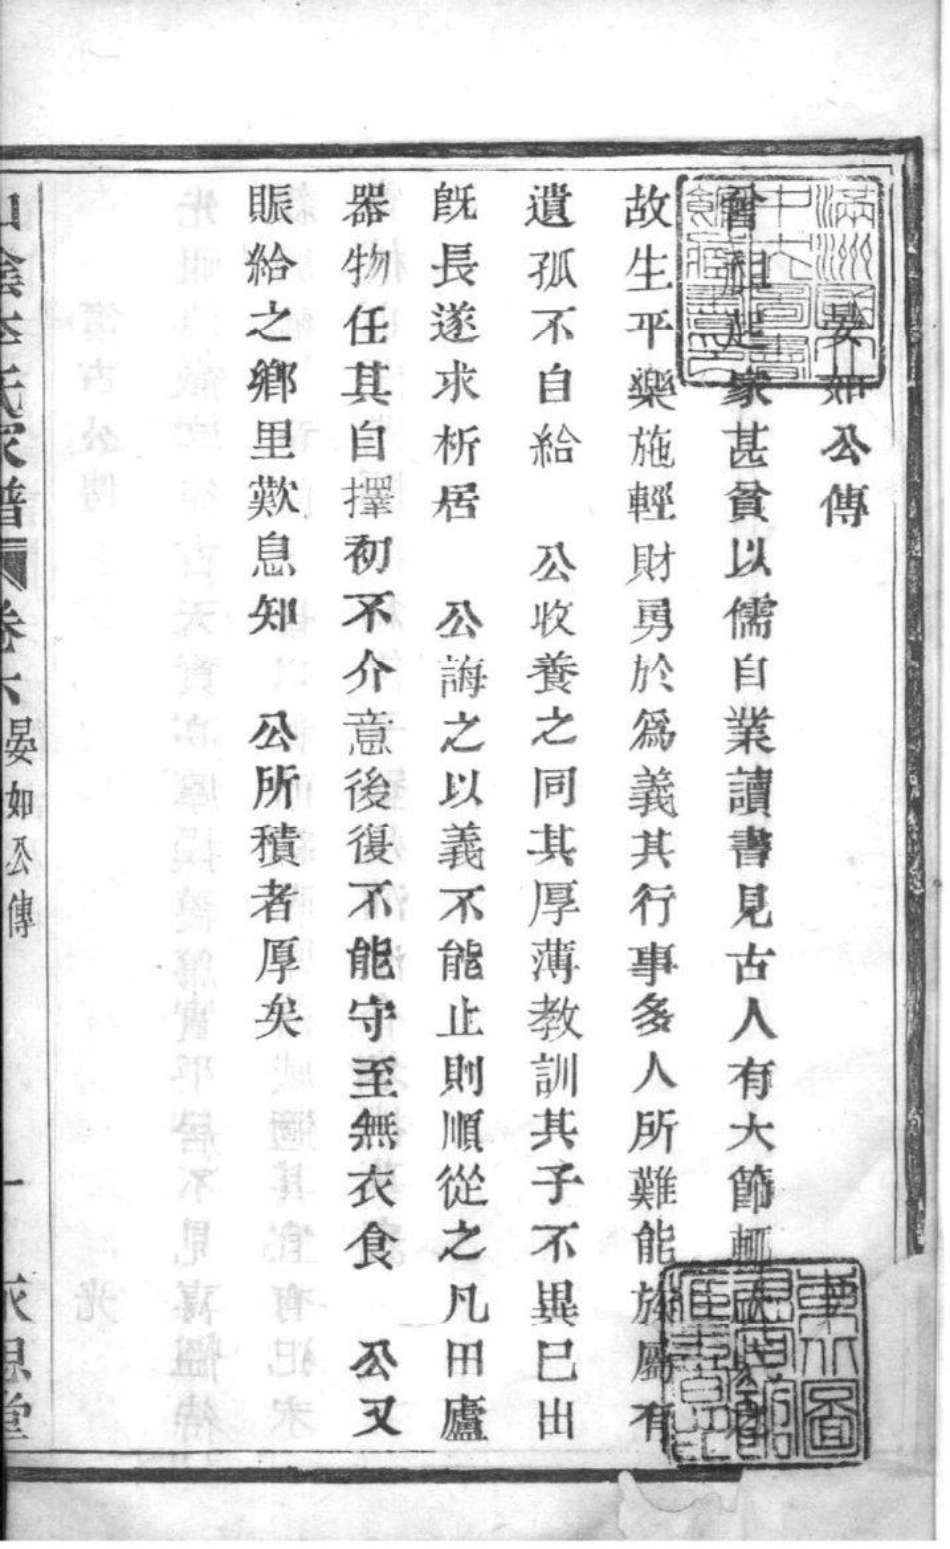 晏如公傳
曾祖起家甚貧以儒自業讀書見古人有大節輒
故生平樂施輕財勇於為義其行事多人所難能族屬有
遺孤不自給　公收養之同其厚薄教訓其子不異巳出
旣長遂求析居　公誨之以義不能止則順從之凡田廬
器物任其自擇初不介意後復不能守至無衣食　公又
賑給之鄉里歎息知　公所積者厚矣
山陰李氏家譜　卷六　晏如公傳　一　永思堂